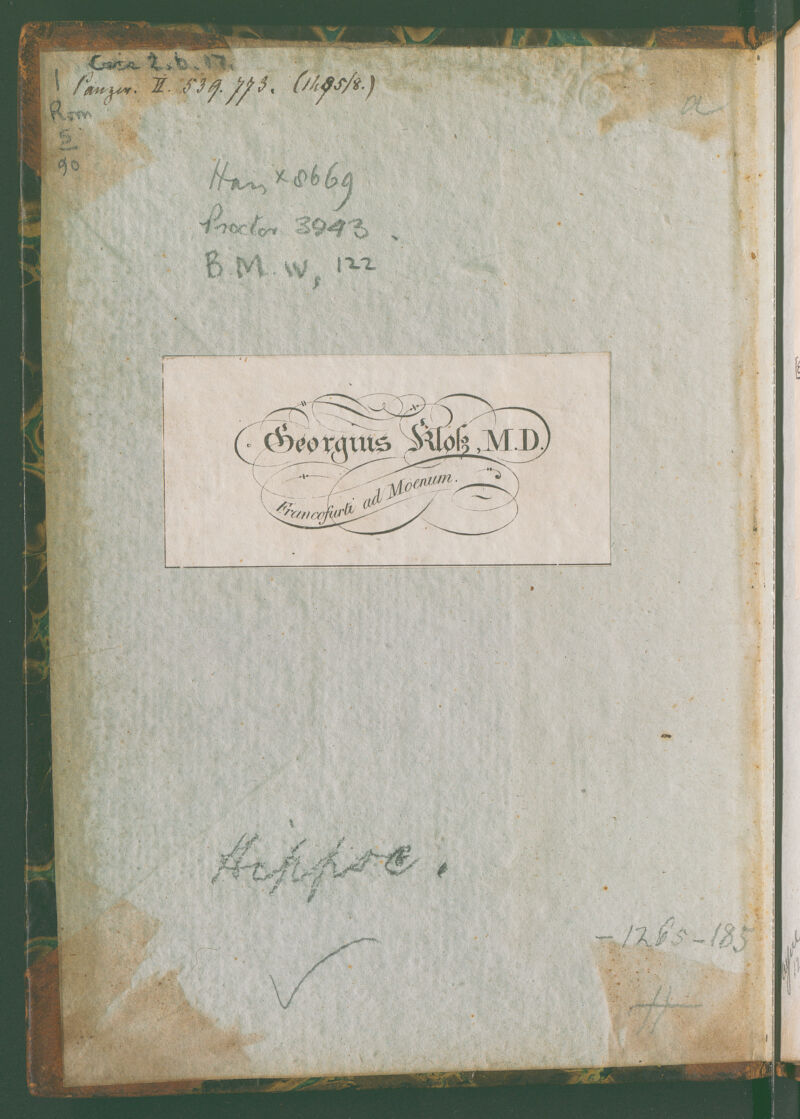 Case 2.b.17.
Panzer. II. 539. 773. (1485/8.)
1
Rom
5
90
a
Hain x 8669
Proctor 3943.
B.M. W, 122
Georgius Kloß, M.D.
Francofurti ad Moenum.
Hippoc.
-1265-185